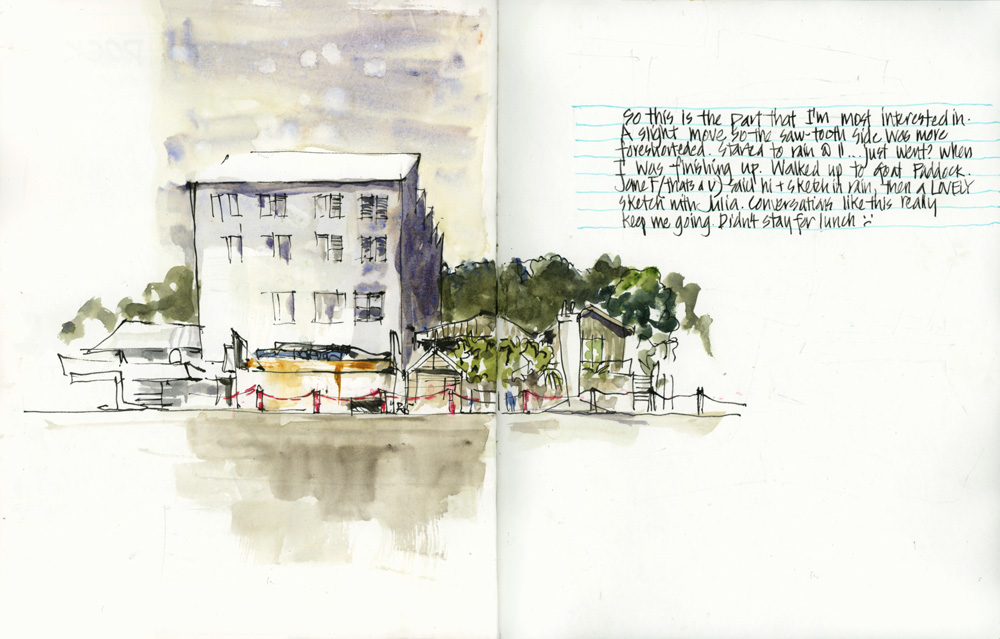 So this is the part that I'm most interested in.
A slight move, so the saw-tooth side was more
foreshortened. Started to rain ☹ !! ... Just went? when
I was finishing up. Walked up to Goat Paddock.
Jane F/ said hi + sketch in rain, then a LOVELY
sketch with Julia. Conversations like this really
keep me going. Didn't stay for lunch :-